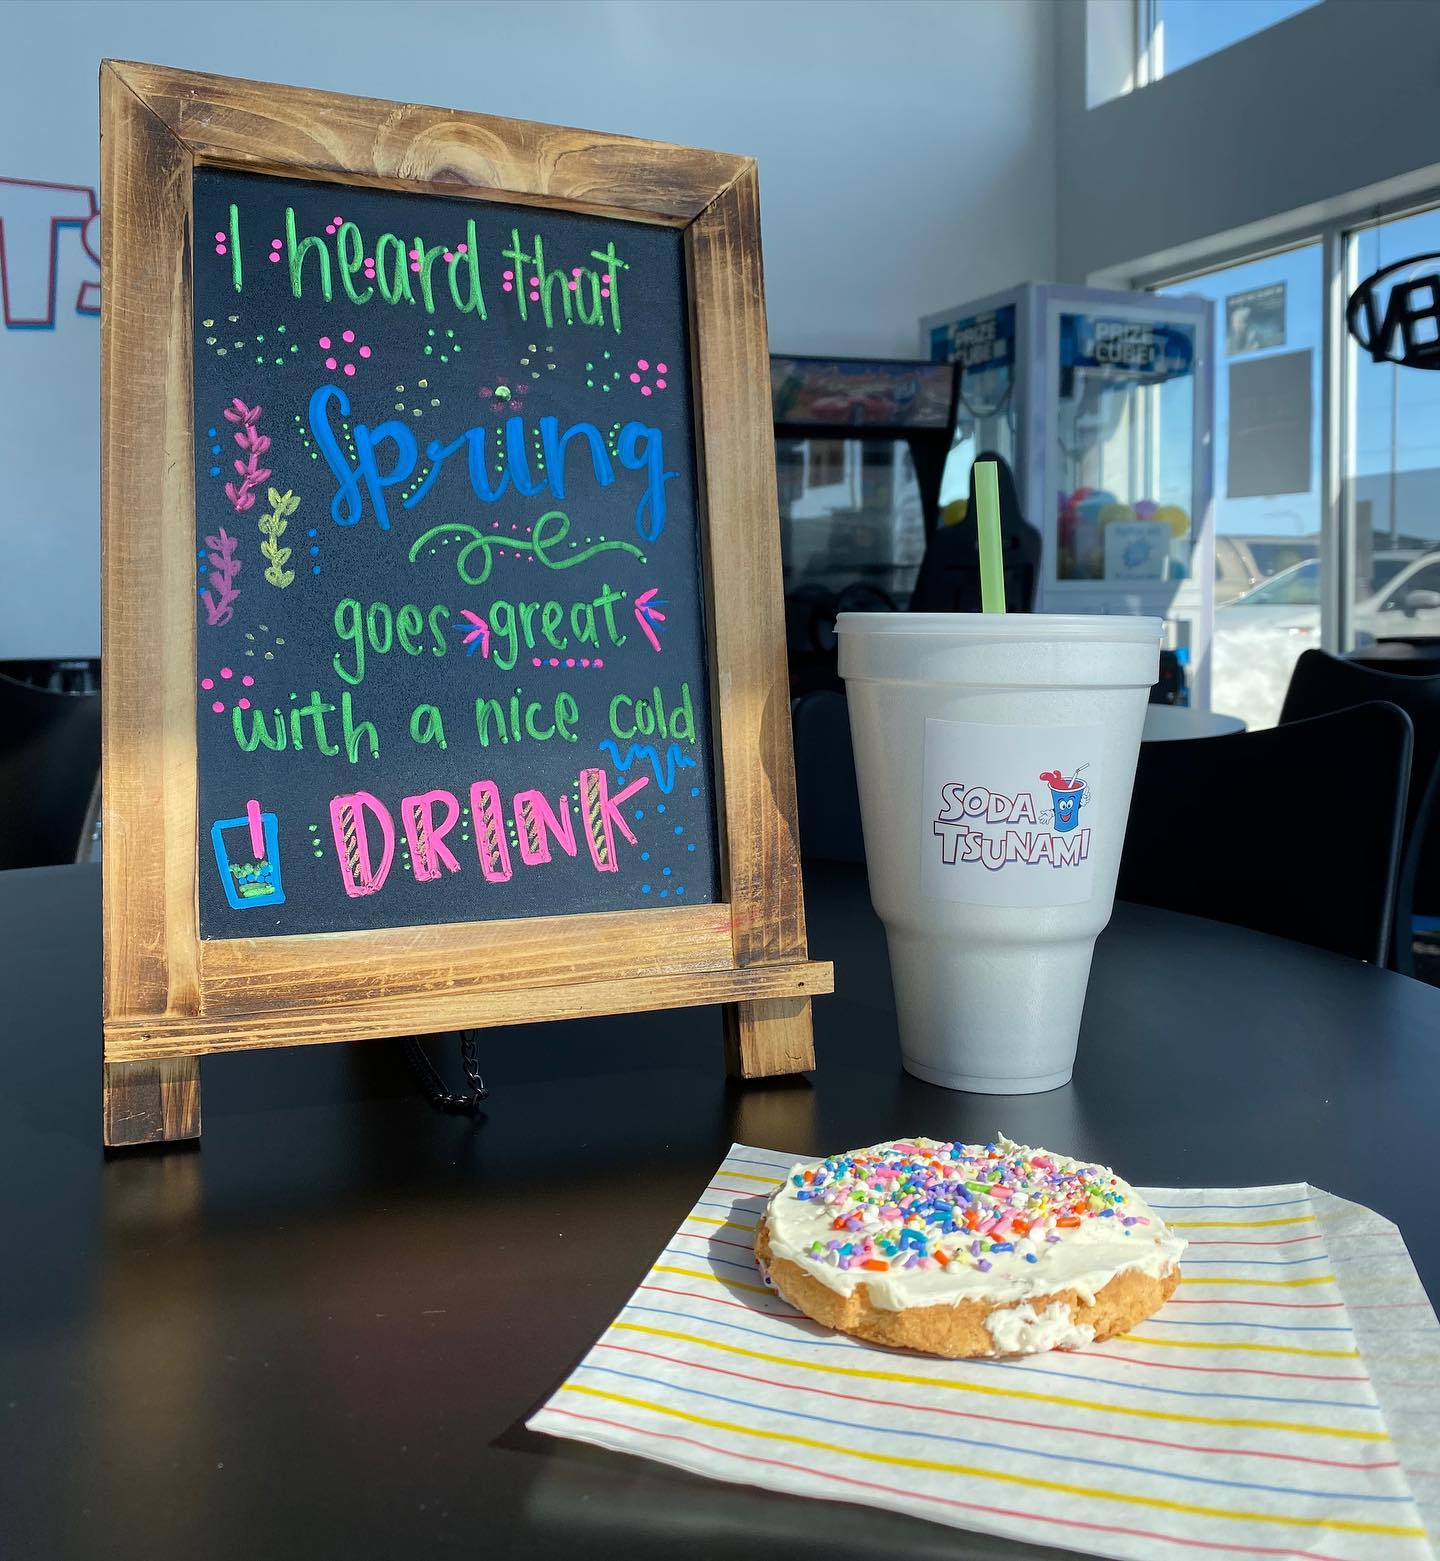 I heard that
Spring
goes great
with a nice cold
DRINK
SODA
TSUNAMI
PRIZE
CUBE!
PRIZE
CUBE!
TS